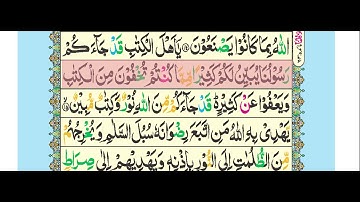 اللّٰهُ بِمَا كَانُوْا يَصْنَعُوْنَ ﴿۱۴﴾ يٰۤاَهْلَ الْكِتٰبِ قَدْ جَآءَكُمْ
رَسُوْلُنَا يُبَيِّنُ لَكُمْ كَثِيْرًا مِّمَّا كُنْتُمْ تُخْفُوْنَ مِنَ الْكِتٰبِ
وَيَعْفُوْا عَنْ كَثِيْرٍ ؕ قَدْ جَآءَكُمْ مِّنَ اللّٰهِ نُوْرٌ وَّكِتٰبٌ مُّبِيْنٌ ﴿۱۵﴾
يَّهْدِيْ بِهِ اللّٰهُ مَنِ اتَّبَعَ رِضْوَانَهٗ سُبُلَ السَّلٰمِ وَيُخْرِجُهُمْ
مِّنَ الظُّلُمٰتِ اِلَى النُّوْرِ بِاِذْنِهٖ وَيَهْدِيْهِمْ اِلٰى صِرَاطٍ